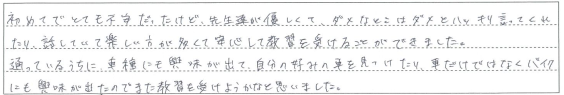 初めてでとても不安だったけど、先生達が優しくて、ダメなとこはダメとハッキリ言ってくれ
たり、話していて楽しい方が多くて安心して教習を受けることができました。
通っているうちに、車種にも興味が出て、自分の好みの車を見つけたり、車だけではなくバイク
にも興味が出たのでまた教習を受けようかなと思いました。